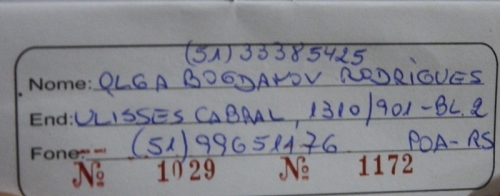 (51) 33385425
Nome: OLGA BOGDANOV RODRIGUES
End: ULISSES CABRAL, 1310/901-BL.2
Fone: (51) 99651176 POA-RS
Nº 1029 Nº 1172